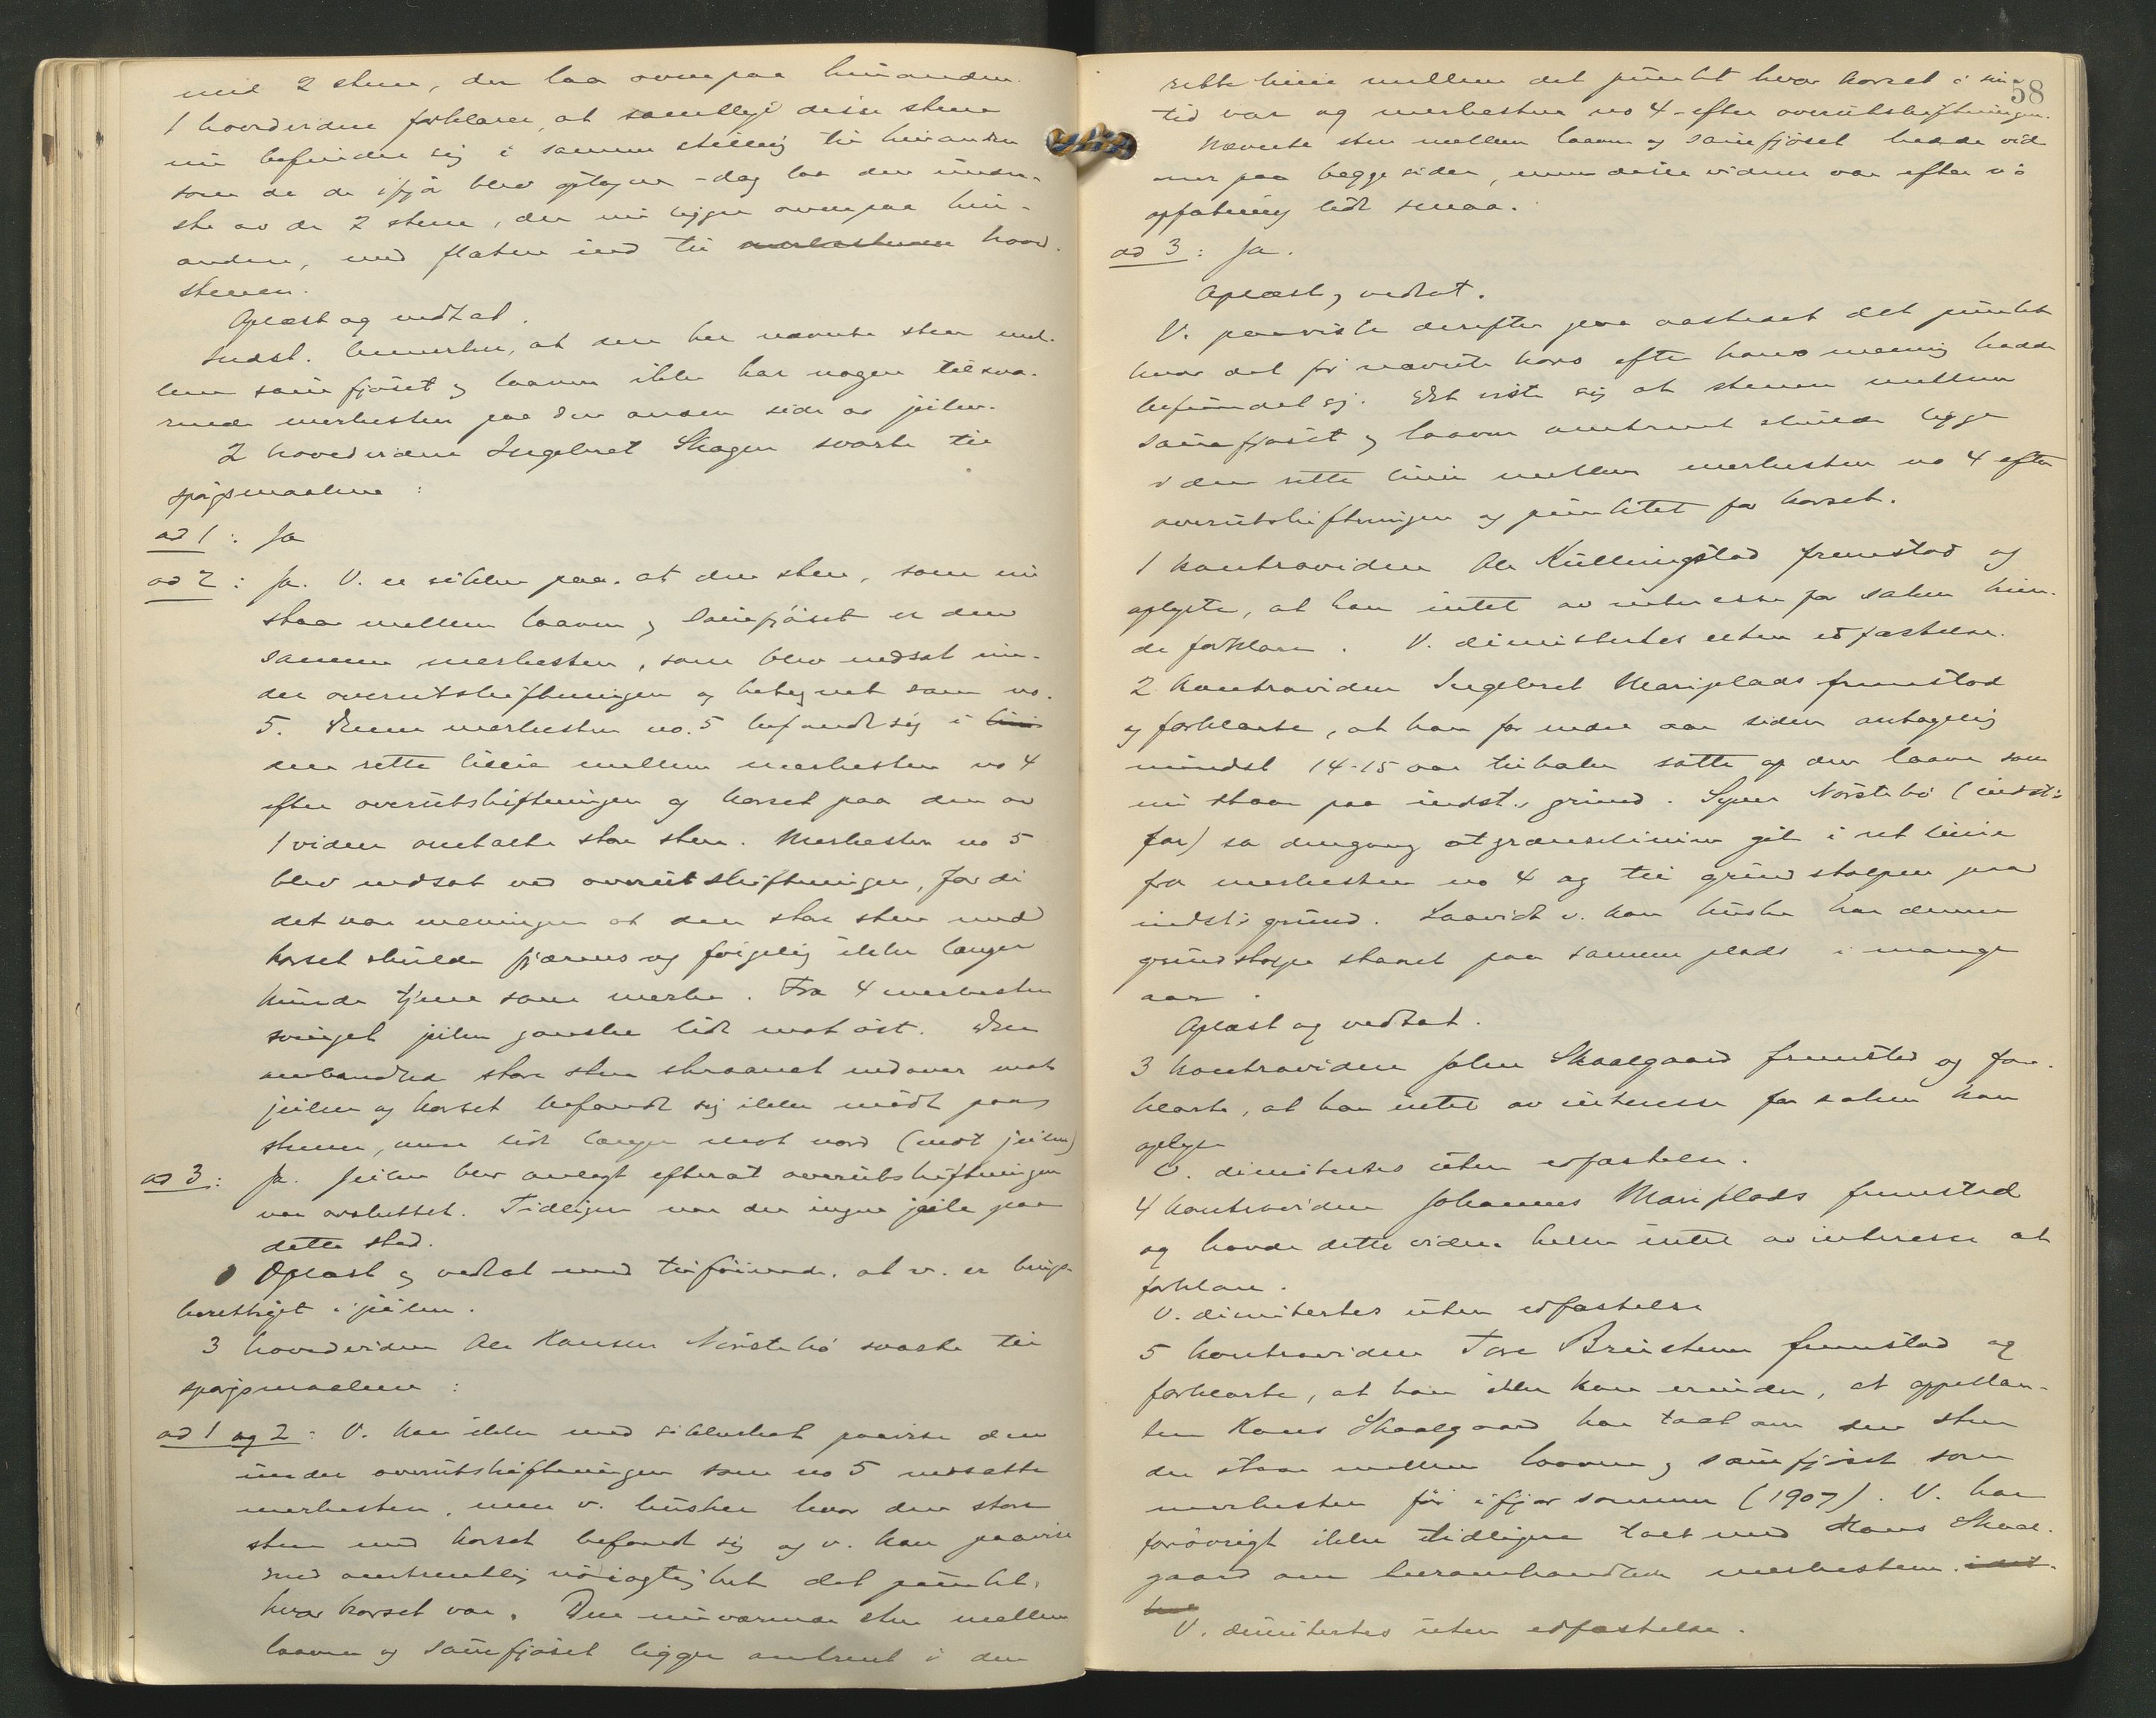 med 2 stene, der laa ovenpaa hinanden.
1 hovedvidne forklarer, at samtlige disse stene
nu befinder sig i samme stilling til hinanden
som da de ifjor blev optagne - dog laa den underste
av de 2 stene, der nu ligger ovenpaa hinanden,
med flaten ind til hovedstenen.
Oplæst og vedtat.
Indst. bemerker, at den her nævnte sten mellem
sauefjøset og laaven ikke har nogen tilsvarende
merkesten paa den anden side av jeilen.
2 hovedvidne Ingebret Skogen svarte til
spørgsmaalene:
ad 1: Ja
ad 2: Ja. V. er sikker paa at den sten, som nu
staar mellem laaven og sauefjøset er den
samme merkesten, som blev nedsat under
overutskiftningen og betegnet som no.
5. Denne merkesten no. 5 befandt sig i
den rette linie mellem merkesten no 4
efter overutskiftningen og korset paa den av
1 vidne omtalte store sten. Merkesten no 5
blev nedsat ved overutskiftningen, fordi
det var meningen at den store sten med
korset skulde fjærnes og følgelig ikke længer
kunde tjene som merke. Fra 4 merkesten
svinget jeilen ganske lidt mot øst. Den
omhandlede store sten skraanet nedover mot
jeilen og korset befandt sig ikke midt paa
stenen, men lidt længer mot nord (mot jeilen)
ad 3: Ja. Jeilen blev anlagt efterat overutskiftningen
var avsluttet. Tidligere var der ingen jeile paa
dette sted.
Oplæst og vedtat med tilføiende, at v. er bruksberettiget
i jeilen.
3 hovedvidne Ole Hansen Nørstebø svarte til
spørgsmaalene:
ad 1 og 2: V. kan ikke med sikkerhet paavise den
under overutskiftningen som no 5 nedsatte
merkesten, men v. husker hvor den store
sten med korset befandt sig og v. kan paavise
med omtrentlig nøiagtighet det punkt,
hvor korset var. Den nuværende sten mellem
laaven og sauefjøset ligger omtrent i den
58
rette linie mellem det punkt hvor korset i sin
tid var og merkesten no 4 - efter overutskiftningen.
Nævnte sten mellem laaven og sauefjøset hadde vidner
paa begge sider, men disse vidner var efter v's
opfatning lidt smaa.
ad 3: Ja.
Oplæst og vedtat.
V. paaviste derefter paa aastedet det punkt
hvor det før nævnte kors efter hans mening hadde
befundet sig. Det viste sig at stenen mellem
sauefjøset og laaven omtrent skulde ligge
i den rette linie mellem merkesten no 4 efter
overutskiftningen og punktet for korset.
1 kontravidne Ole Kullingstad fremstod og
oplyste, at han intet av interesse for saken kunde
forklare. V. dimittertes uten edfæstelse.
2 kontravidne Ingebret Mariplads fremstod
og forklarte, at han for endel aar siden antagelig
mindst 14-15 aar tilbake satte op den laave som
nu staar paa indst.s grund. Syver Nørstebø (indst.s
far) sa dengang at grænselinien gik i ret linie
fra merkesten no 4 og til grindstolpen paa
indst.s grund. Saavidt v. kan huske har denne
grindstolpe staaet paa samme plads i mange
aar.
Oplæst og vedtat.
3 kontravidne John Skaalgaard fremstod og forklarte,
at han intet av interesse for saken kan
oplyse
V. dimittertes uten edfæstelse.
4 kontravidne Johannes Mariplads fremstod
og havde dette vidne heller intet av interesse at
forklare.
V. dimittertes uten edfæstelse
5 kontravidne Tore Bruestuen fremstod og
forklarte, at han ikke kan erindre, at appellanten
Hans Skaalgaard har talt om den sten
der staar mellem laaven og sauefjøset som
merkesten før ifjor sommer (1907). V. har
forøvrigt ikke tidligere talt med Hans Skaalgaard
om heromhandlede merkesten.
V. dimittertes uten edfæstelse.